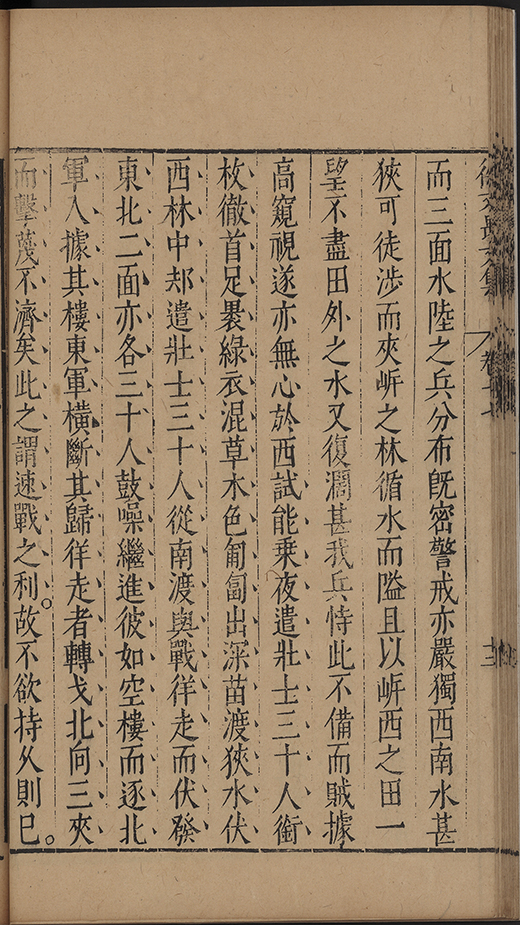 而三面水陸之兵分布旣密警戒亦嚴獨西南水甚
狹可徒涉而夾岍之林循水而隘且以岍西之田一
望不盡田外之水又復濶甚我兵恃此不備而賊據
高窺視遂亦無心於西試能乘夜遣壯士三十人銜
枚徹首足褁綠衣混草木色匍匐出深苗渡狹水伏
西林中刼遣壯士三十人從南渡與戰佯走而伏發
東北二面亦各三十人鼓噪繼進彼如空樓而逐北
軍入據其樓東軍橫斷其歸佯走者轉戈北向三夾
而擊蔑不濟矣此之謂速戰之利。故不欲持久則已。